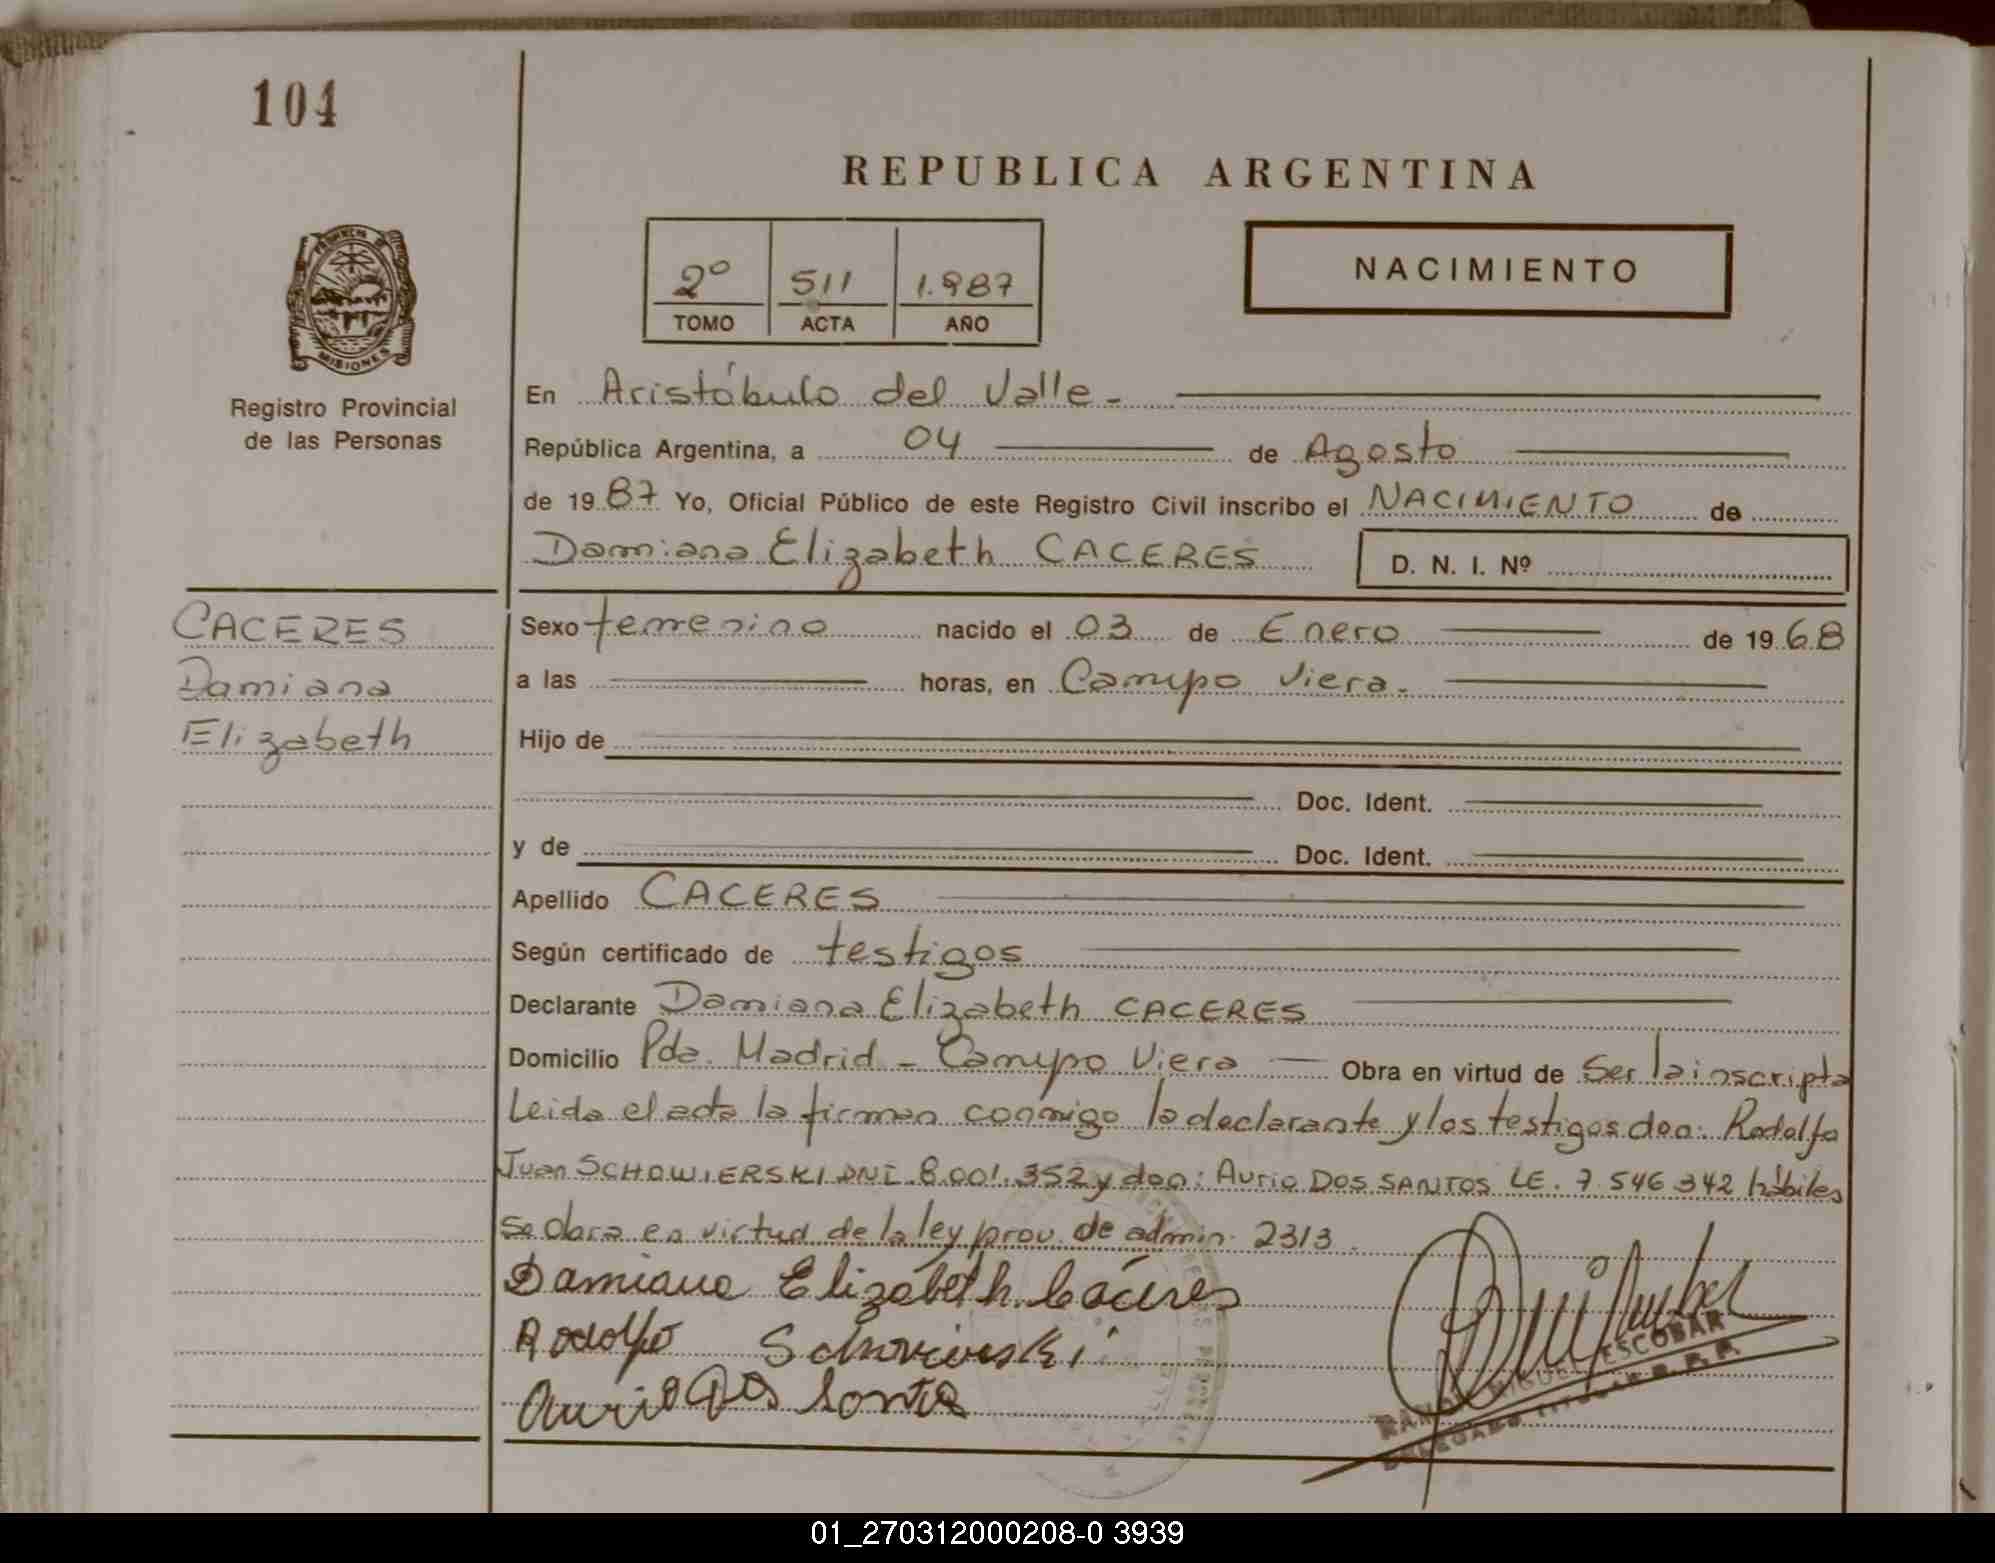 104
REPUBLICA ARGENTINA
PROVINCIA DE
MISIONES
Registro Provincial
de las Personas
2º 511 1.987
TOMO ACTA AÑO
NACIMIENTO
En Aristóbulo del Valle.-
República Argentina, a 04 de Agosto
de 1987 Yo, Oficial Público de este Registro Civil inscribo el NACIMIENTO de
Damiana Elizabeth CACERES D. N. I. Nº
CACERES
Damiana
Elizabeth
Sexo femenino nacido el 03 de Enero de 1968
a las horas, en Campo Viera.
Hijo de
Doc. Ident.
y de Doc. Ident.
Apellido CACERES
Según certificado de testigos
Declarante Damiana Elizabeth CACERES
Domicilio Pda. Madrid - Campo Viera Obra en virtud de Ser la inscripta
Leida el acta la firman conmigo la declarante y los testigos don: Rodolfo
Juan SCHOWIERSKI DNI. 8.001.352 y don: Aurio DOS SANTOS LE. 7.546.342 hábiles
se obra en virtud de la ley prov. de admin. 2313
Damiana Elizabeth Cáceres
Rodolfo
Aurio Dos Santos
MIGUEL ESCOBAR
DELEGADO TITULAR
01_270312000208-0 3939